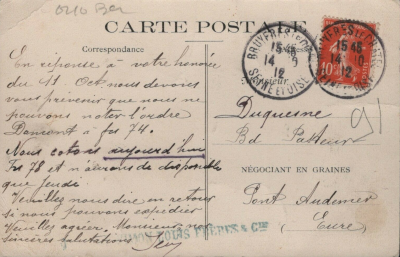 CARTE POSTALE
Correspondance
En réponse à votre honorée
du 11 Oct. nous devons
vous prévenir que nous ne
pouvons noter l'ordre
à frs 74.
Nous cotons aujourd'hui
Frs 78 et n'aurons de disponible
que jeudi
Veuillez nous dire en retour
si nous pouvons expédier
Veuillez agréer, Monsieur, nos
sincères salutations
FRÈRES & Cie
BRUYERES-LE-CHATEL
15 45
14 10
12
SEINE ET OISE
15 45
14 10
12
10
Monsieur
Duquesne
Bd Pasteur
NÉGOCIANT EN GRAINES
Pont Audemer
(Eure)
91